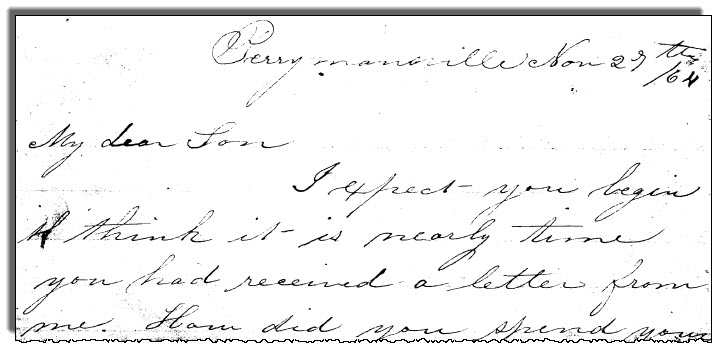 Perrymansville Nov 27th /64
My dear Son
I expect you begin
to think it is nearly time
you had received a letter from
me. How did you spend your